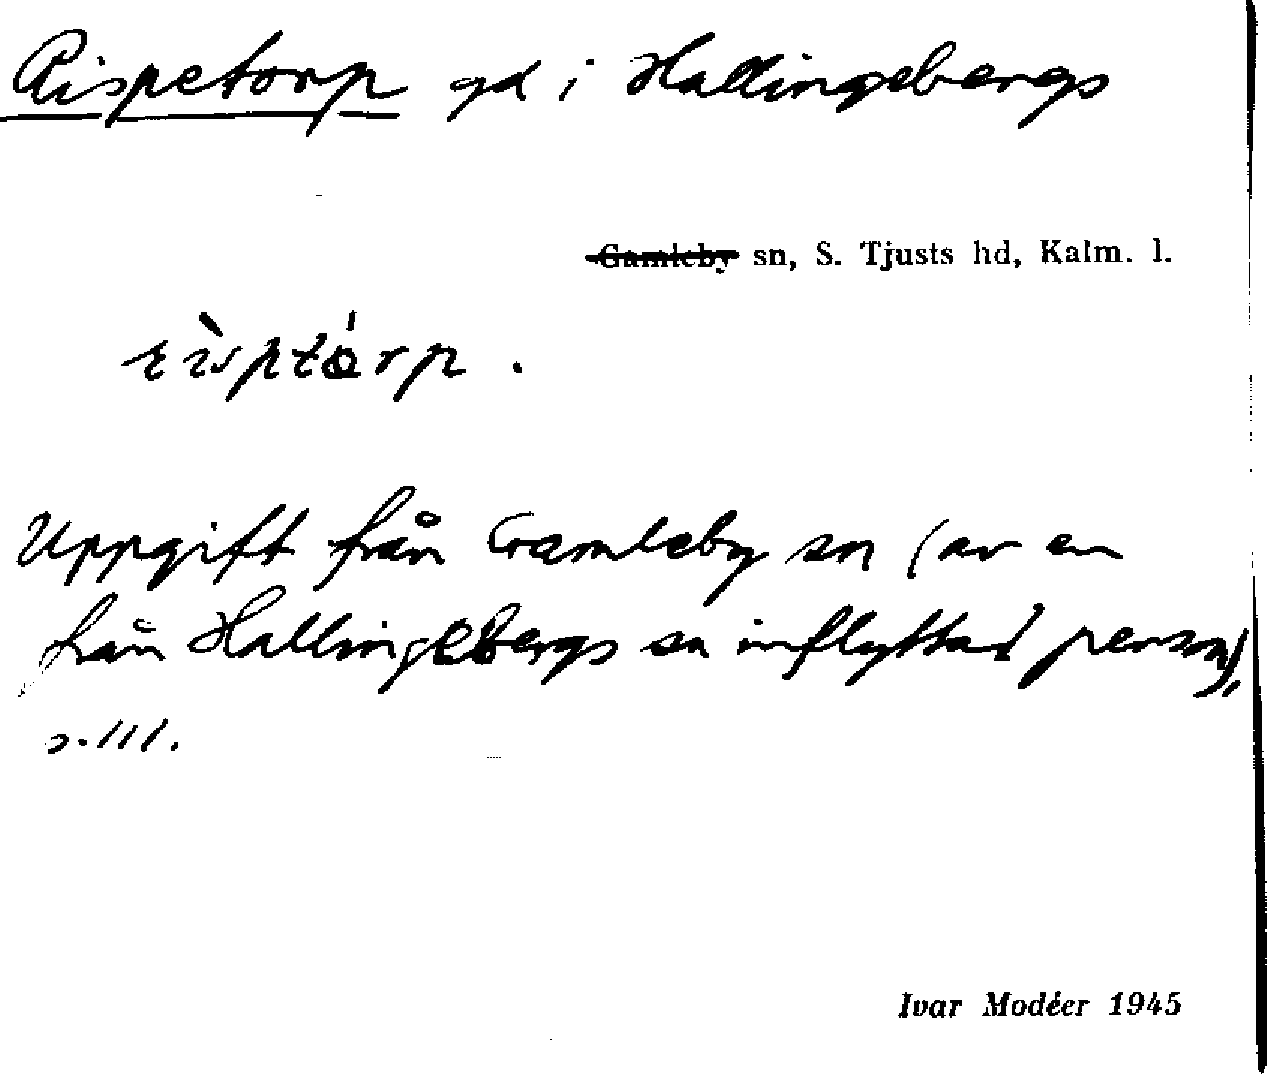 Rispetorp gd i Hallingebergs
Gamleby sn, S. Tjusts hd, Kalm. l.
rìsptórp.
Uppgift från Gamleby sn (av en
från Hallingebergs sn inflyttad person),
s. 111.
Ivar Modéer 1945